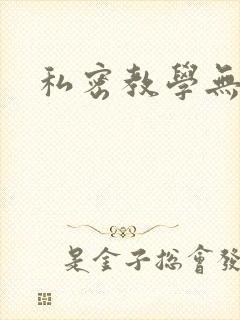 私密教學無
是金子總會發